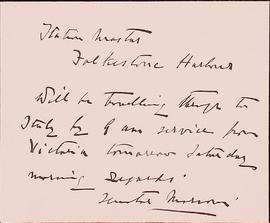 Station Master
Folkestone Harbour
Will be travelling through to
Italy by 9 am service from
Victoria tomorrow Saturday
morning Regards
Senator Marconi